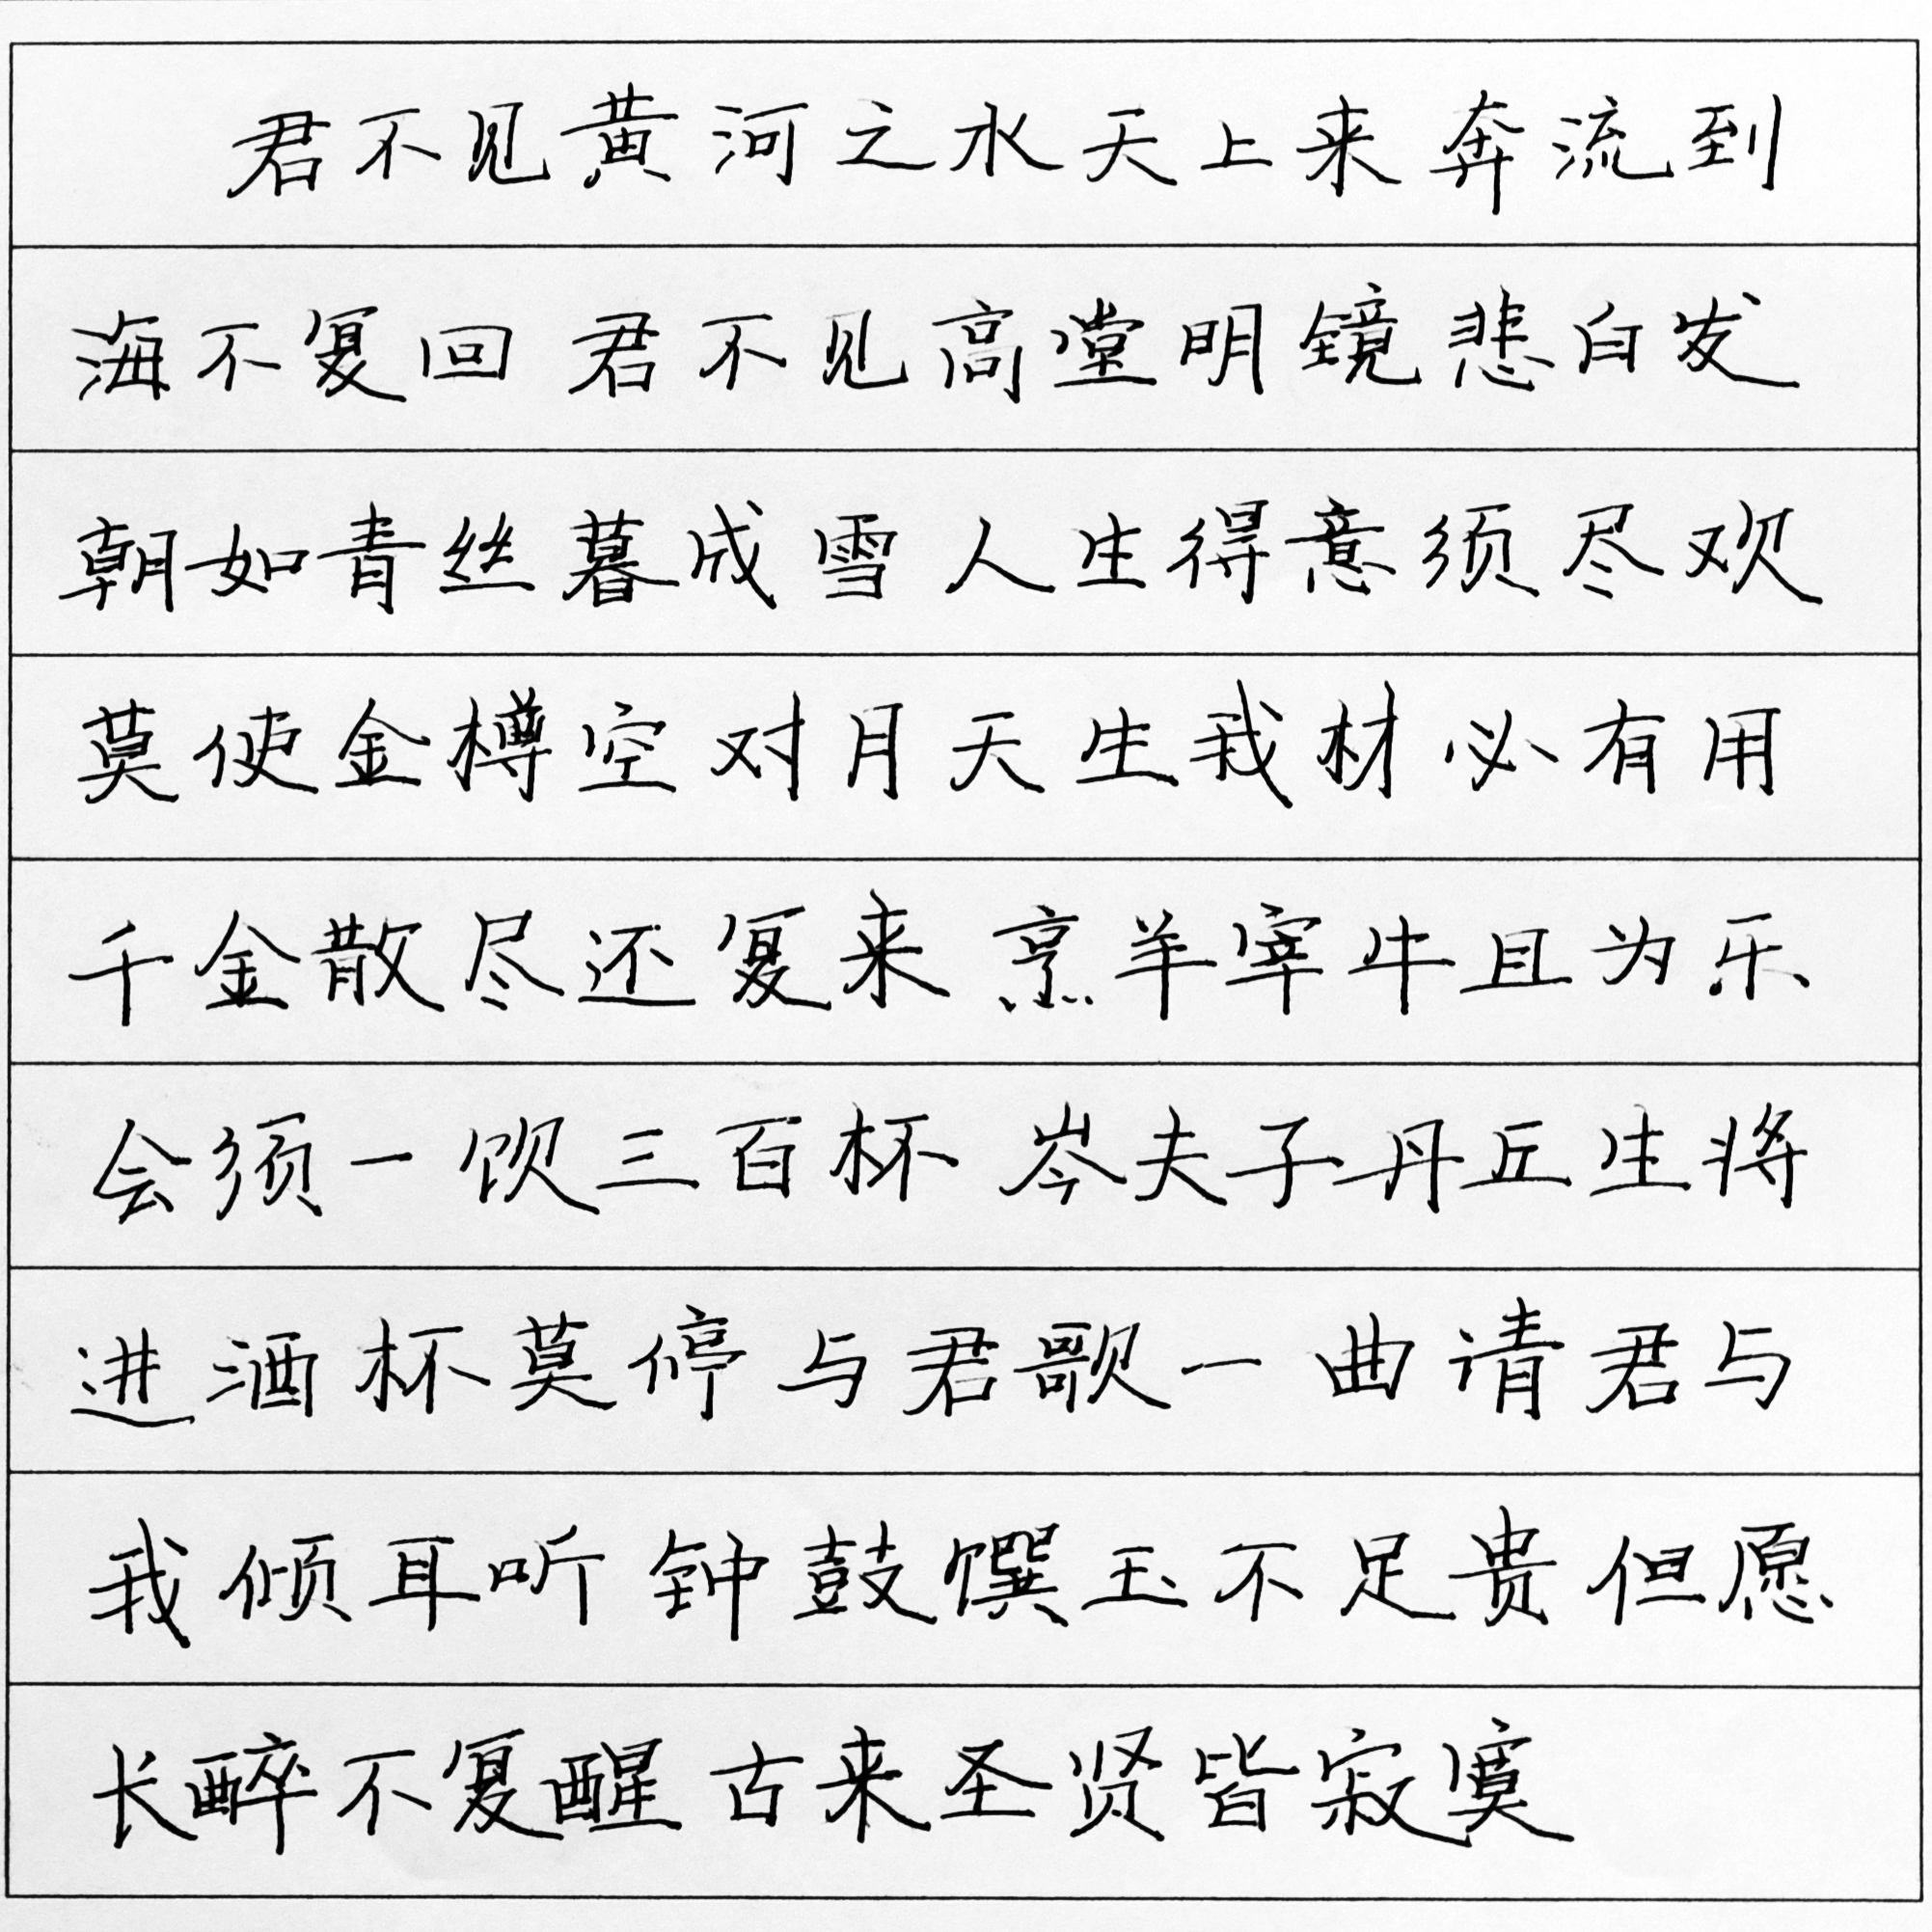 君不见黄河之水天上来奔流到
海不复回君不见高堂明镜悲白发
朝如青丝暮成雪人生得意须尽欢
莫使金樽空对月天生我材必有用
千金散尽还复来烹羊宰牛且为乐
会须一饮三百杯岑夫子丹丘生将
进酒杯莫停与君歌一曲请君与
我倾耳听钟鼓馔玉不足贵但愿
长醉不复醒古来圣贤皆寂寞